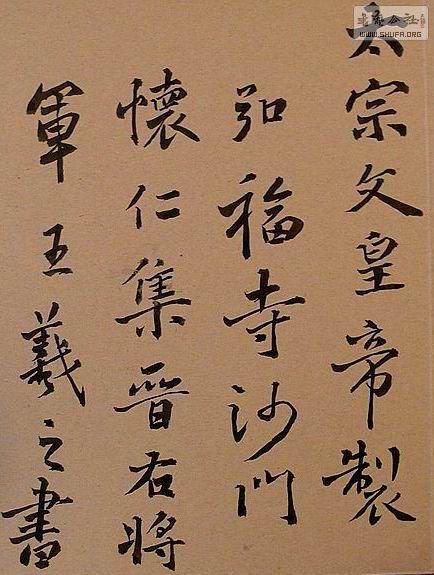 太宗文皇帝製
弘福寺沙門
懷仁集晉右將
軍王羲之書
書法公社
WWW.SHUFA.ORG